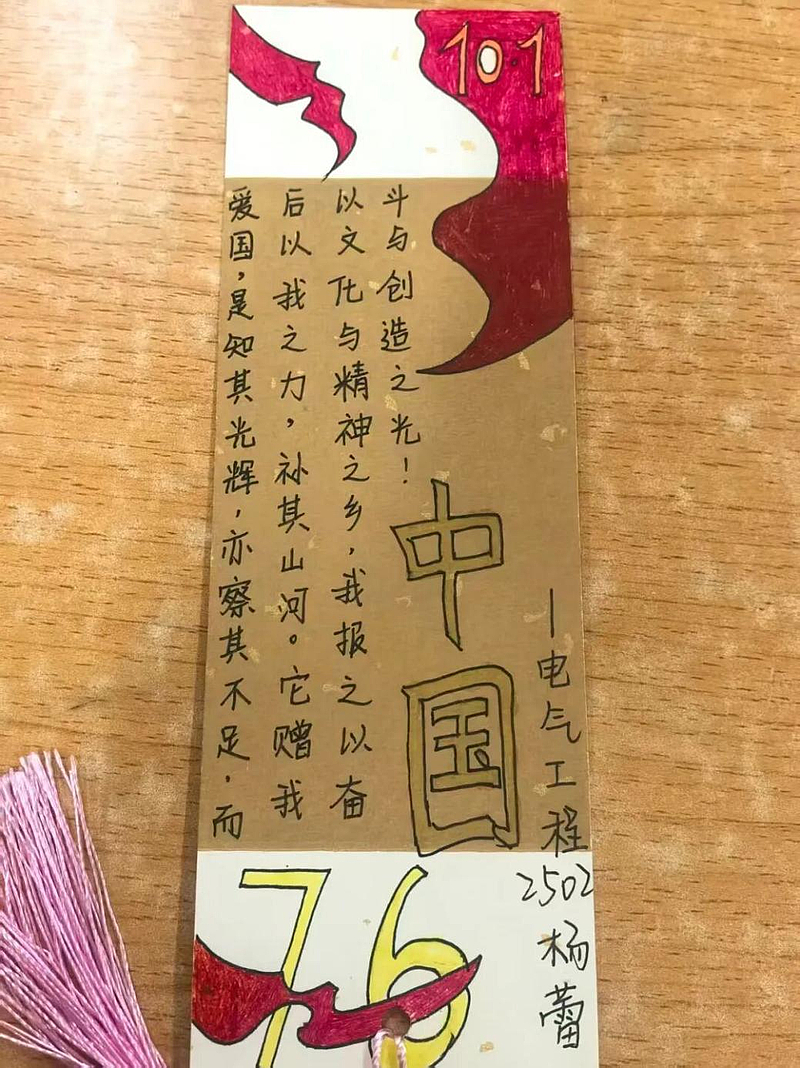 10·1
爱国，是知其光辉，亦察其不足，而
后以我之力，补其山河。它赠我
以文化与精神之乡，我报之以奋
斗与创造之光！
中国
—电气工程2502杨蕾
76